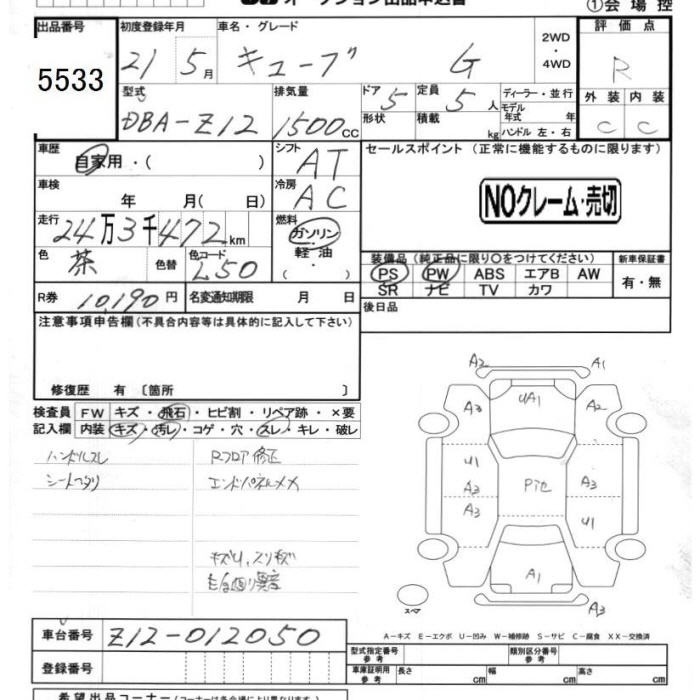 オークション出品申込書
①会場控
出品番号
5533
初度登録年月
21 5月
車名・グレード
キューブ G
2WD・4WD
評価点
R
外装 内装
C C
型式
DBA-Z12
排気量
1500cc
ドア 5
形状
定員 5人
積載 kg
ディーラー・並行
モデル年式 年
ハンドル 左・右
車歴
自家用・( )
シフト AT
車検
年 月( 日)
冷房 AC
走行
24万3千472km
燃料
ガソリン
軽油
色 茶
色替
色コード L50
R券 10,190円
名変通知期限 月 日
セールスポイント (正常に機能するものに限ります)
NOクレーム・売切
装備品 (純正品に限り○をつけてください)
新車保証書
PS PW ABS エアB AW
SR ナビ TV カワ
有・無
後日品
注意事項申告欄 (不具合内容等は具体的に記入して下さい)
修復歴 有 〔箇所 〕
検査員記入欄
FW キズ・飛石・ヒビ割・リペア跡・×要
内装 キズ・汚レ・コゲ・穴・スレ・キレ・破レ
ハンドルスレ
シートヘタリ
Rフロア修正
エンドパネルメカ
キズU、スリキズ
A2 A1
A3 UA1 A2
U1 A3
A3 Pіセ A3
U1
A1
A3
スペア
A-キズ E-エクボ U-凹み W-補修跡 S-サビ C-腐食 XX-交換済
車台番号 Z12-012050
登録番号
型式指定番号 参考
類別区分番号 参考
車庫証明用 参考
長さ cm 幅 cm 高さ cm
希望出品コーナー (コーナーは各会場により異なります)